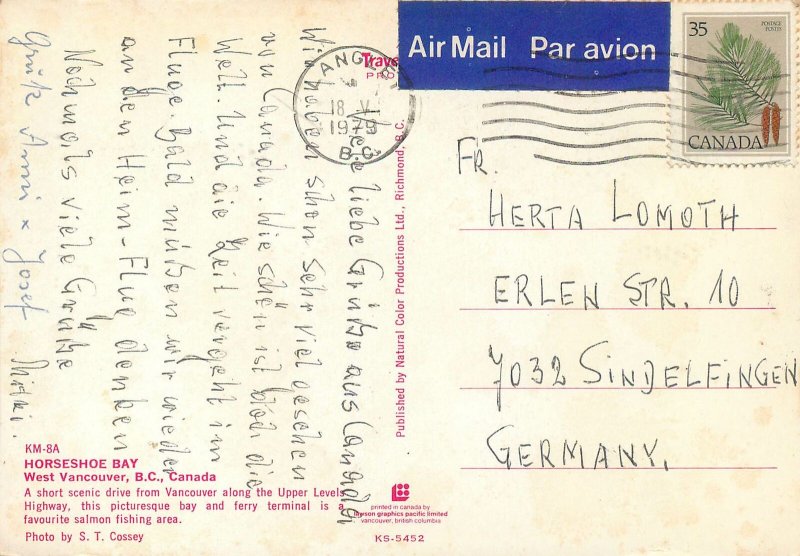 Viele liebe Grüße aus Canada
Wir haben schon sehr viel gesehen
von Canada. Wie schön ist bloß die
Welt. Und die Zeit vergeht im
Fluge. Bald müßen wir wieder
an den Heim-Flug denken
Nochmals viele Grüße
Mitzi.
Grüße Anni x Josef
Air Mail Par avion
35
POSTAGE
POSTES
CANADA
18 V
1979
B.C.
FR.
HERTA LOMOTH
ERLEN STR. 10
7032 SINDELFINGEN
GERMANY.
Published by Natural Color Productions Ltd., Richmond, B.C.
KM-8A
HORSESHOE BAY
West Vancouver, B.C., Canada
A short scenic drive from Vancouver along the Upper Levels
Highway, this picturesque bay and ferry terminal is a
favourite salmon fishing area.
Photo by S. T. Cossey
printed in canada by
lawson graphics pacific limited
vancouver, british columbia
KS-5452